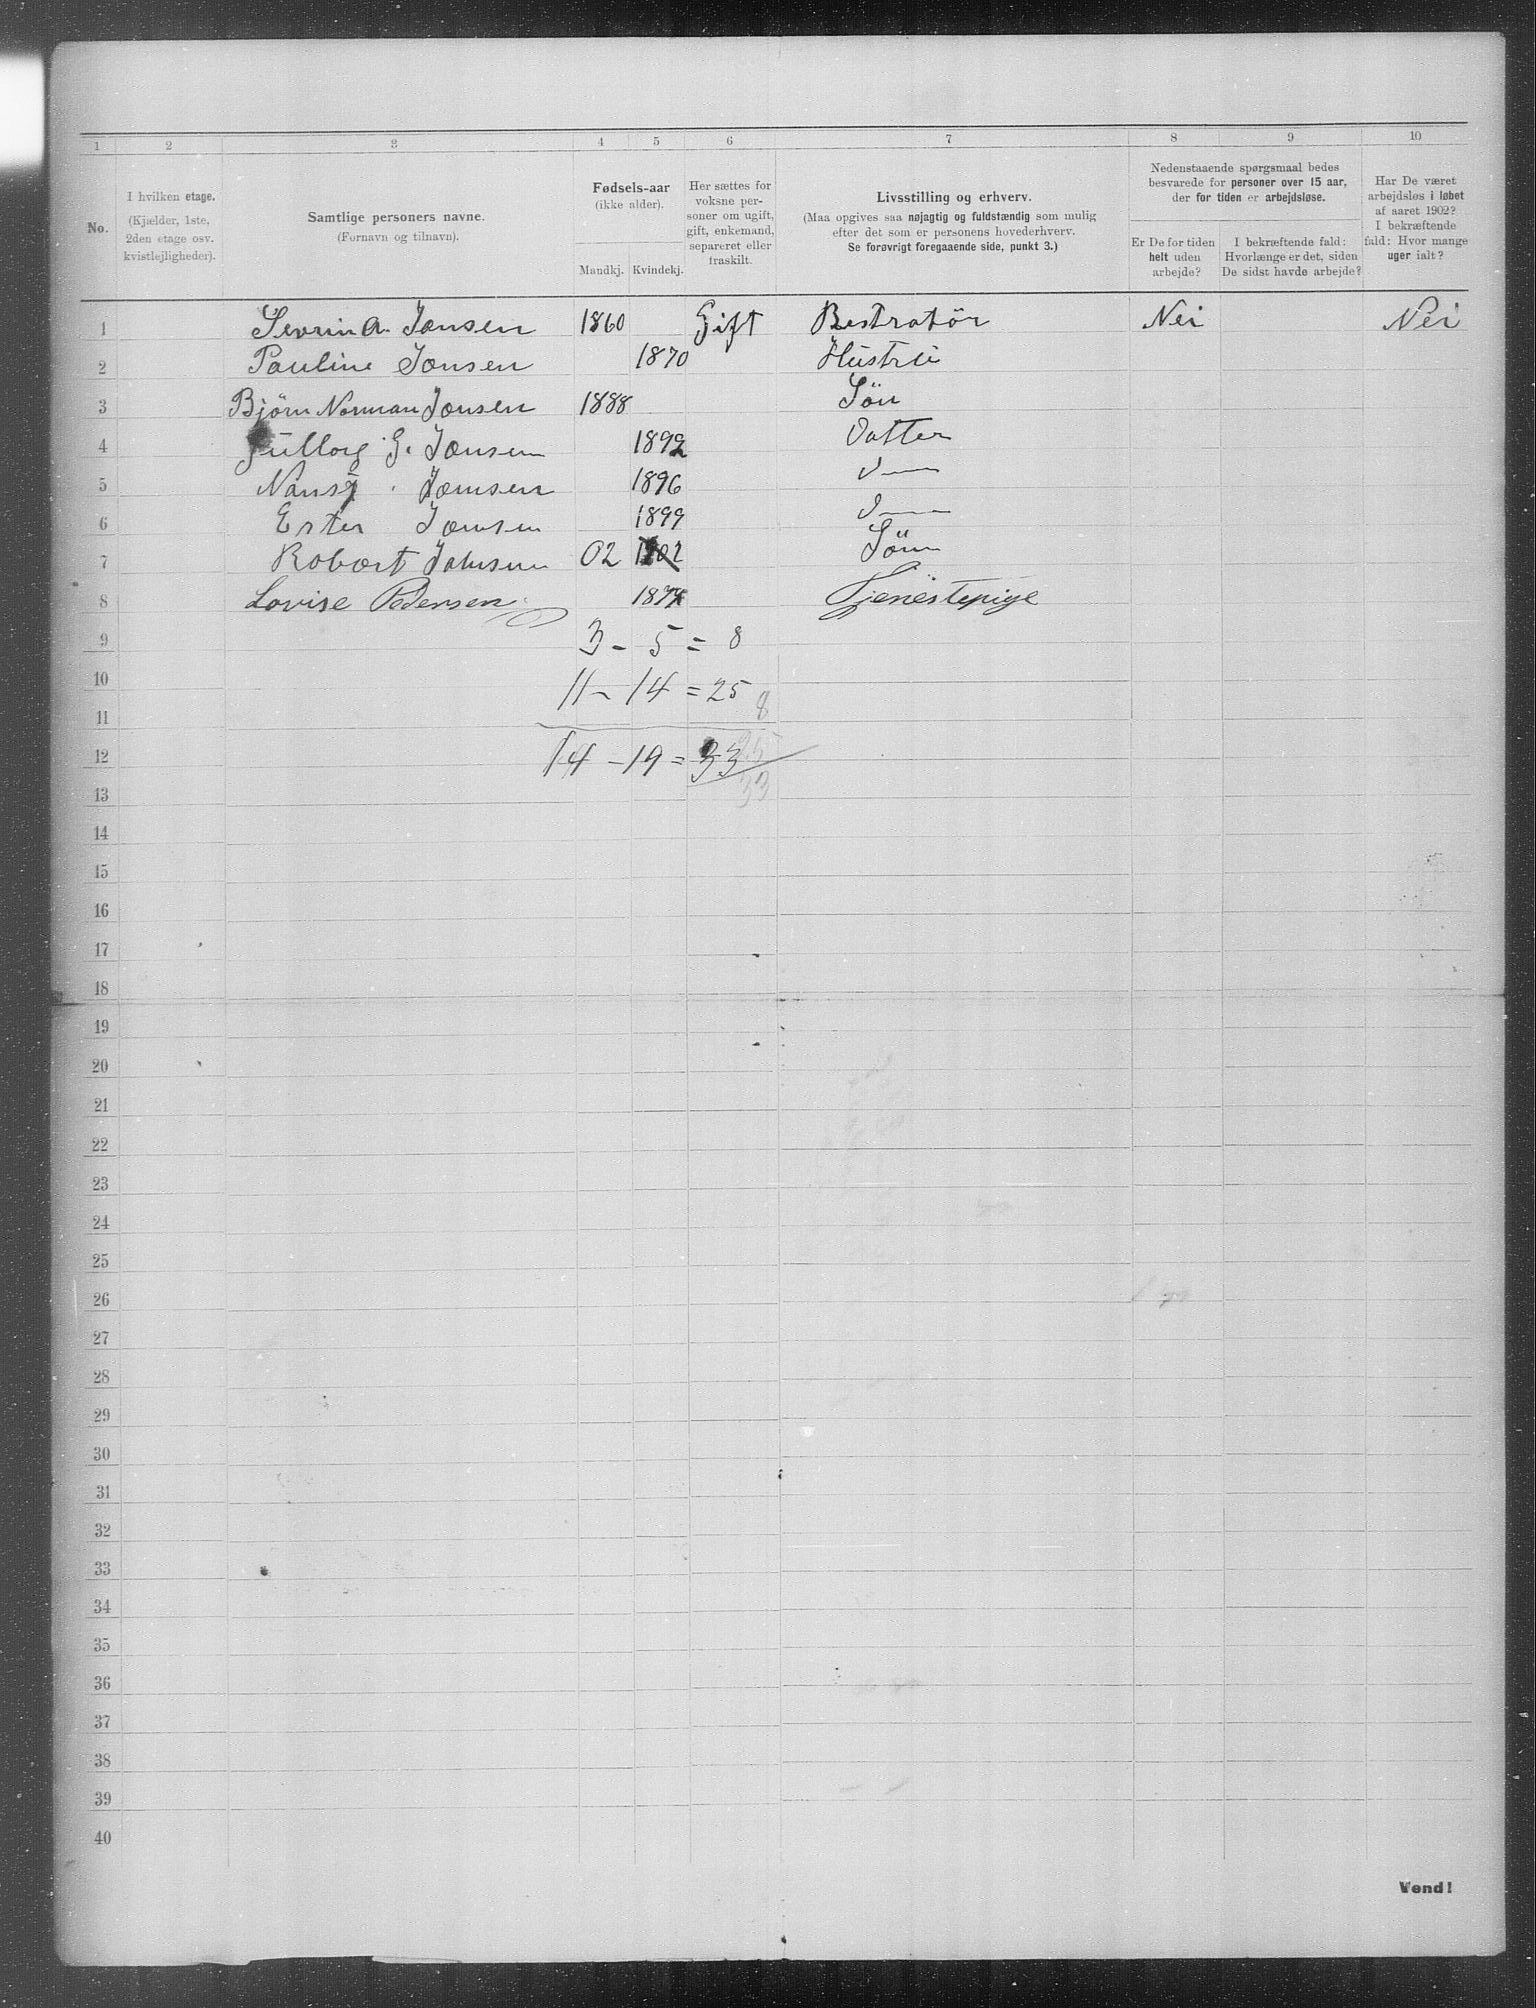 1 2 3 4 5 6 7 8 9 10
No.
I hvilken etage.
(Kjælder, 1ste,
2den etage osv.
kvistlejligheder).
Samtlige personers navne.
(Fornavn og tilnavn).
Fødsels-aar
(ikke alder).
Mandkj. Kvindekj.
Her sættes for
voksne per-
soner om ugift,
gift, enkemand,
separeret eller
fraskilt.
Livsstilling og erhverv.
(Maa opgives saa nøjagtig og fuldstændig som mulig
efter det som er personens hovederhverv.
Se forøvrigt foregaaende side, punkt 3.)
Nedenstaaende spørgsmaal bedes
besvarede for personer over 15 aar,
der for tiden er arbejdsløse.
Er De for tiden
helt uden
arbejde?
I bekræftende fald:
Hvorlænge er det, siden
De sidst havde arbejde?
Har De været
arbejdsløs i løbet
af aaret 1902?
I bekræftende
fald: Hvor mange
uger ialt?
1 Sevrin A. Jansen 1860 Gift Bestratör Nei Nei
2 Pauline Jansen 1870 Hustru
3 Björn Norman Jansen 1888 Sön
4 G. Jansen 1892 Datter
5 Nansy Jansen 1896
6 Ester Jansen 1899
7 Robert Jahnsen 02 1902 Sön
8 Lovise Pedersen Tjenestepige
9 3 - 5 = 8
10 11 - 14 = 25 8
11
12 14 - 19 = 33 25
13 33
14
15
16
17
18
19
20
21
22
23
24
25
26
27
28
29
30
31
32
33
34
35
36
37
38
39
40
Vend!